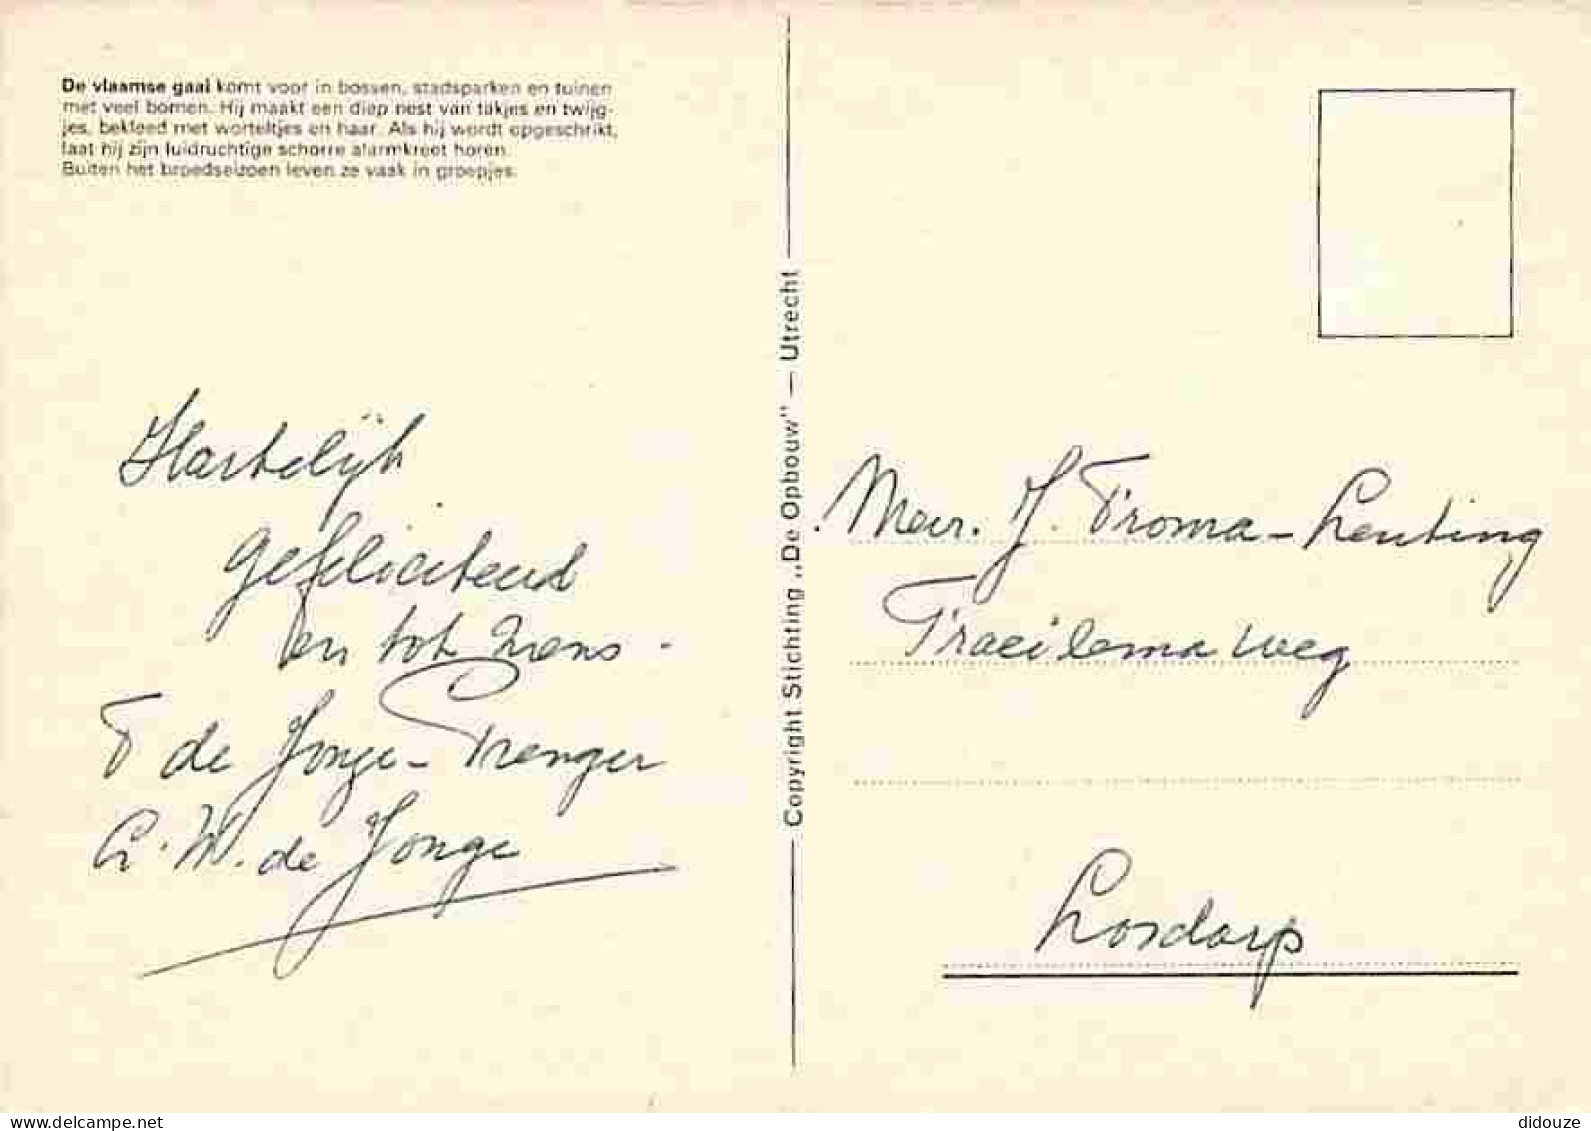 De vlaamse gaai komt voor in bossen, stadsparken en tuinen
met veel bomen. Hij maakt een diep nest van takjes en twijg-
jes, bekleed met worteltjes en haar. Als hij wordt opgeschrikt,
laat hij zijn luidruchtige schorre alarmkreet horen.
Buiten het broedseizoen leven ze vaak in groepjes.
Hartelijk
gefeliciteerd
en tot ziens.
T de Jonge-Prenger
G. W. de Jonge
Copyright Stichting „De Opbouw" — Utrecht
Mevr. J. Troma-Lenting
weg
Losdorp
delcampe.net
didouze